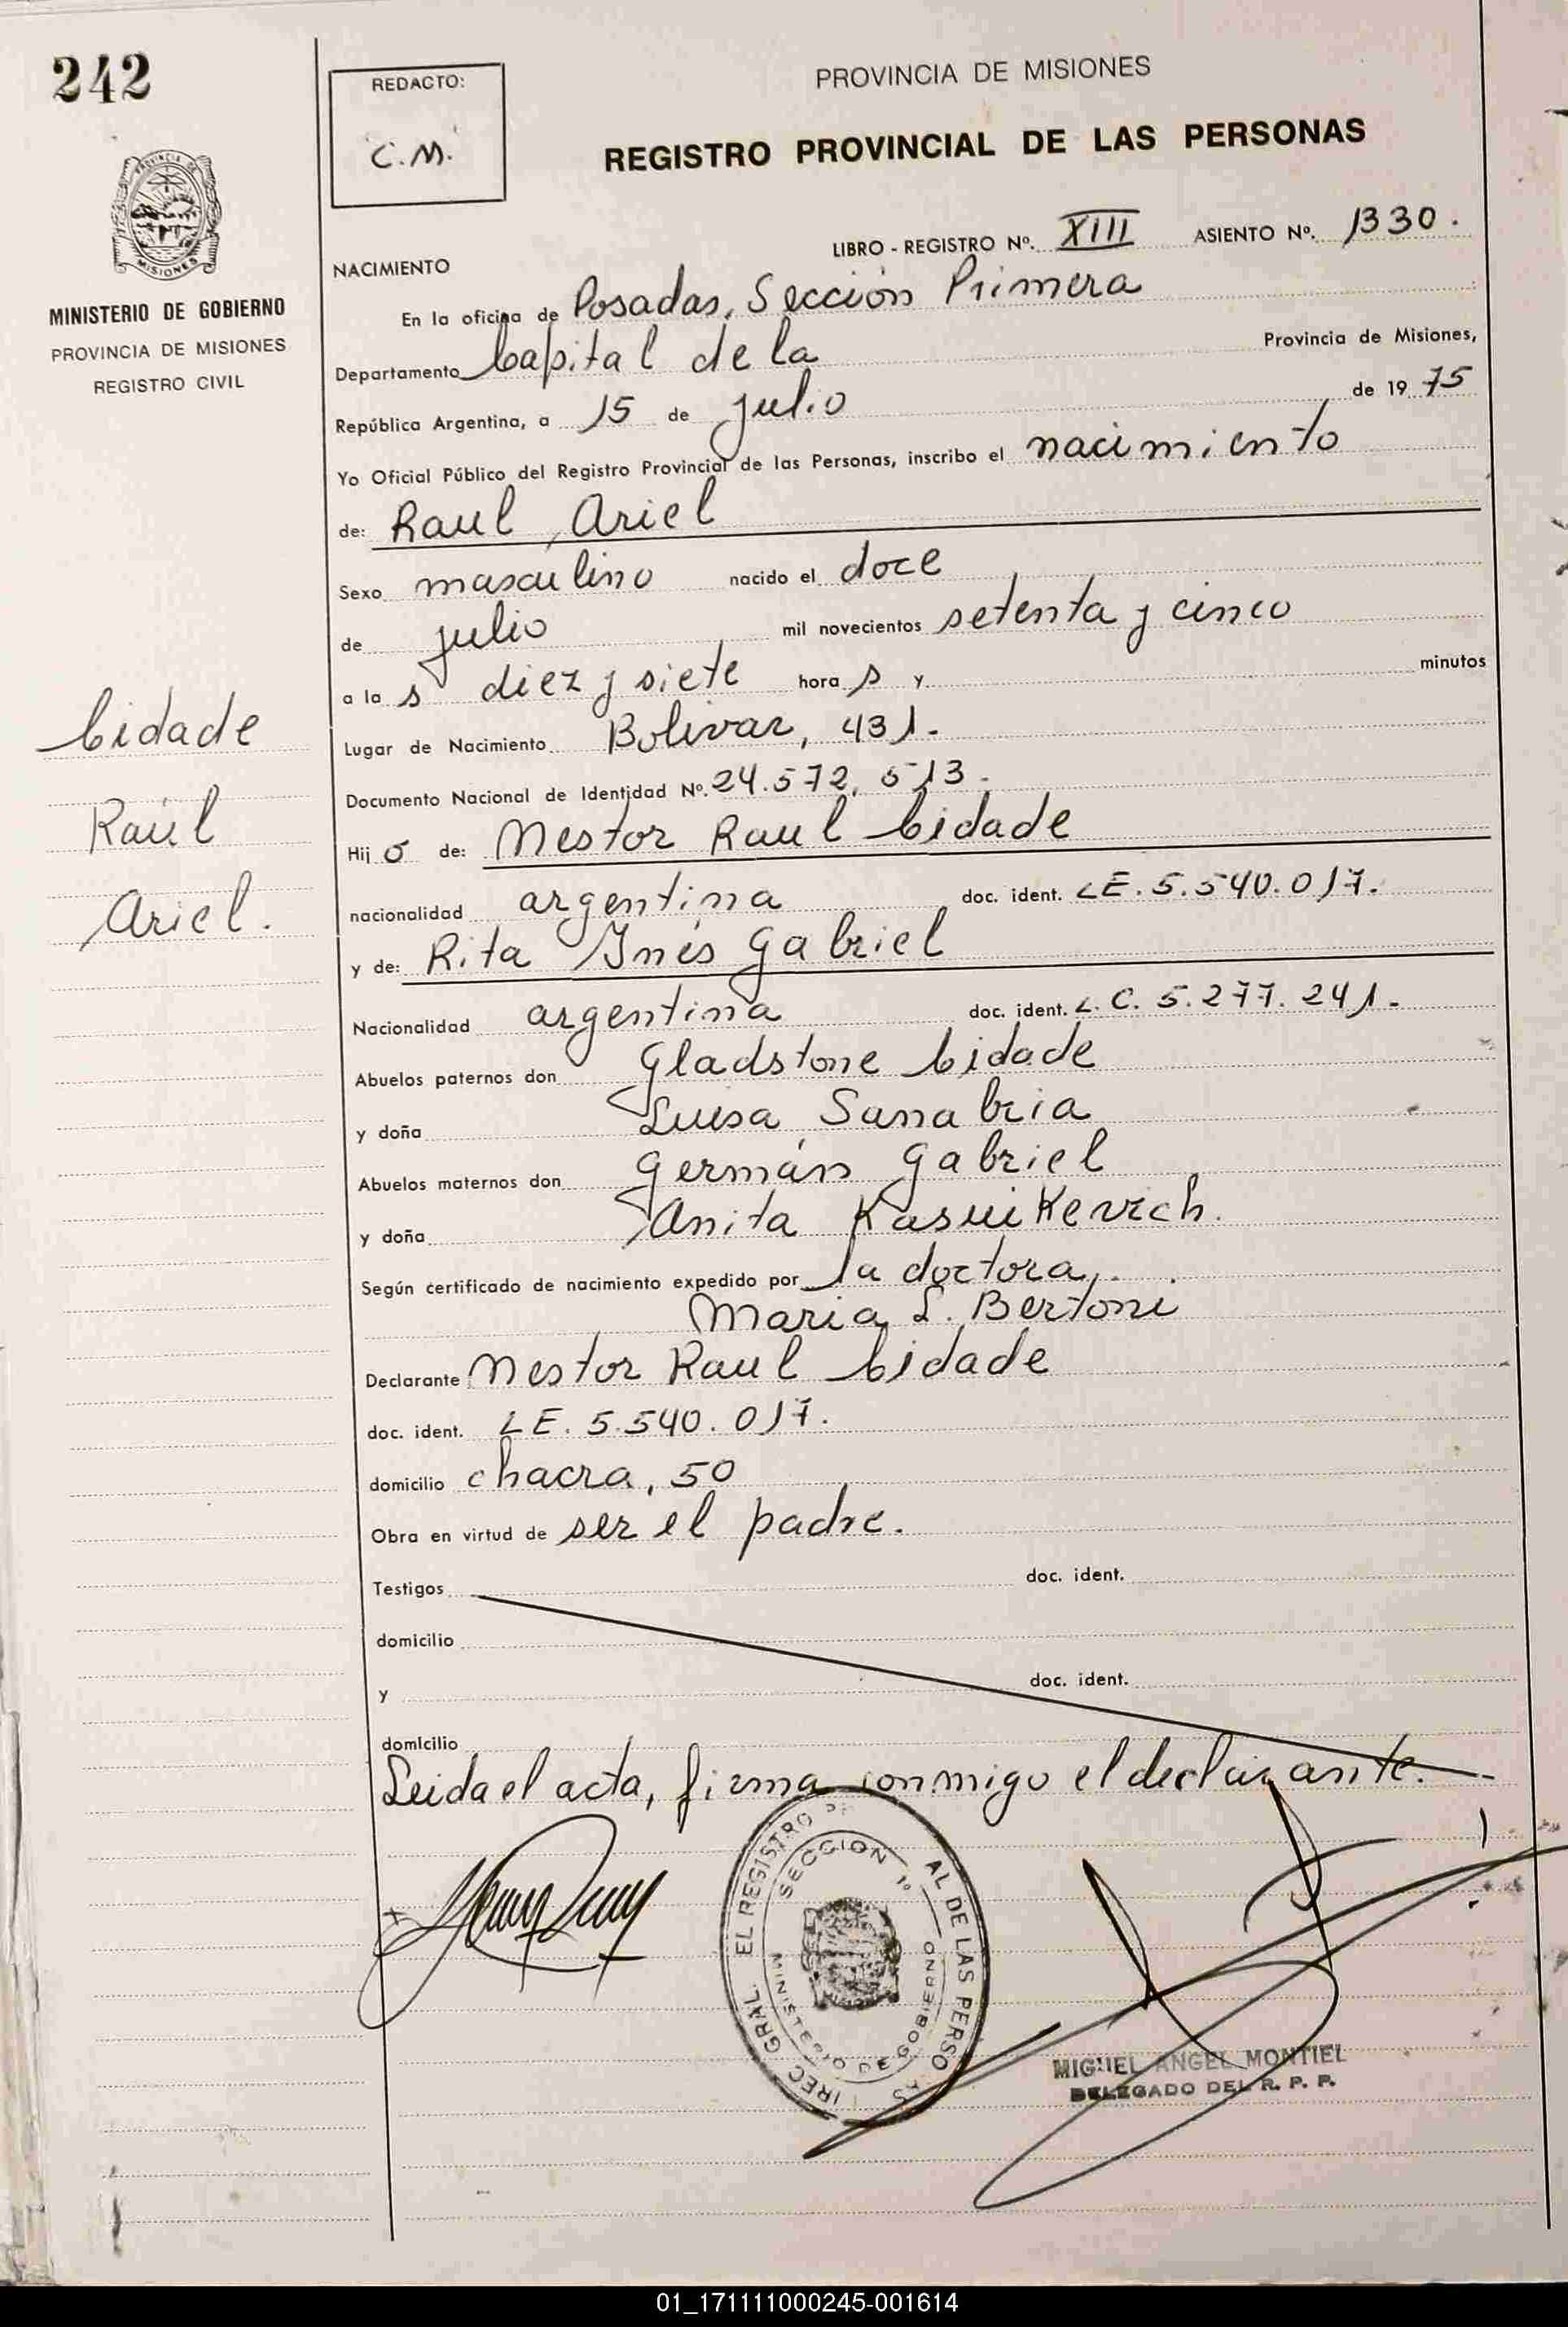 242
REDACTO:
C.M.
PROVINCIA DE MISIONES
REGISTRO PROVINCIAL DE LAS PERSONAS
LIBRO - REGISTRO Nº. XIII ASIENTO Nº. 1330.
PROVINCIA DE
MISIONES
MINISTERIO DE GOBIERNO
PROVINCIA DE MISIONES
REGISTRO CIVIL
NACIMIENTO
En la oficina de Posadas, Sección Primera
Departamento Capital de la Provincia de Misiones,
República Argentina, a 15 de julio de 1975
Yo Oficial Público del Registro Provincial de las Personas, inscribo el nacimiento
de: Raul Ariel
Sexo masculino nacido el doce
de julio mil novecientos setenta y cinco
a la s diez y siete hora s y minutos
Lugar de Nacimiento Bolivar, 431.
Documento Nacional de Identidad Nº. 24.572.513.
Hij o de: Nestor Raul Cidade
nacionalidad argentina doc. ident. LE. 5.540.017.
y de: Rita Inés Gabriel
Nacionalidad argentina doc. ident. L.C. 5.277.241.
Abuelos paternos don Gladstone Cidade
y doña Luisa Sanabria
Abuelos maternos don Germán Gabriel
y doña Anita
Según certificado de nacimiento expedido por la doctora,
Maria L. Bertoni
Declarante Nestor Raul Cidade
doc. ident. LE. 5.540.017.
domicilio chacra, 50
Obra en virtud de ser el padre.
Testigos doc. ident.
domicilio
y doc. ident.
domicilio
Leida el acta, firma conmigo el declarante.
Cidade
Raúl
Ariel.
SECCION 1º
MINISTERIO DE GOBIERNO
MIGUEL ANGEL MONTIEL
DELEGADO DEL R. P. P.
01_171111000245-001614